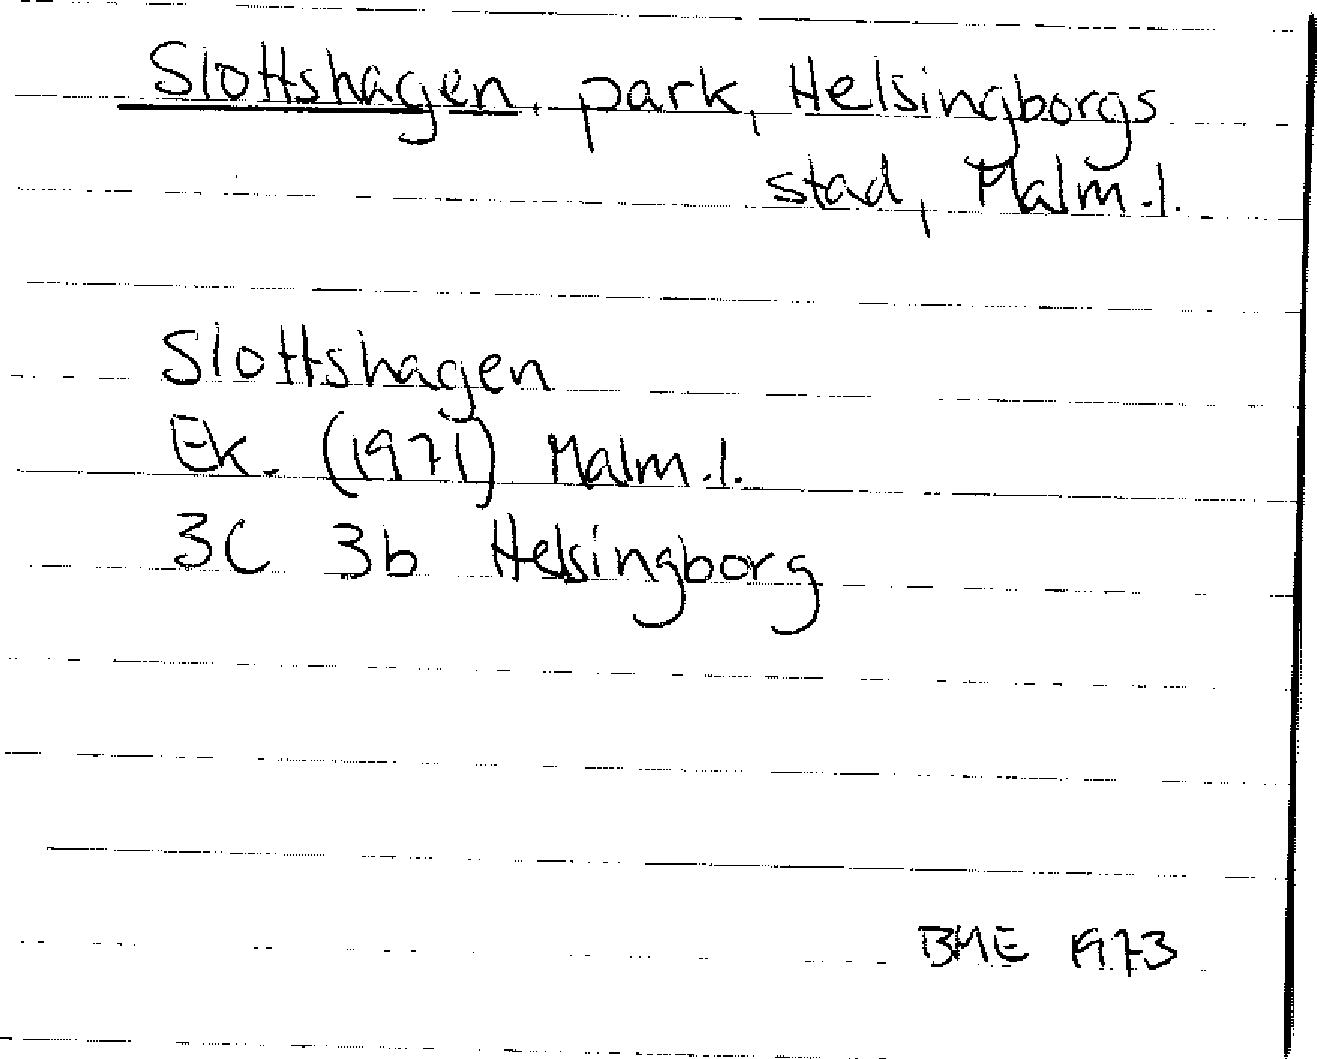 Slottshagen, park, Helsingborgs
stad, Malm.l.
Slottshagen
Ek. (1971) Malm.l.
3C 3b Helsingborg
BME 1973